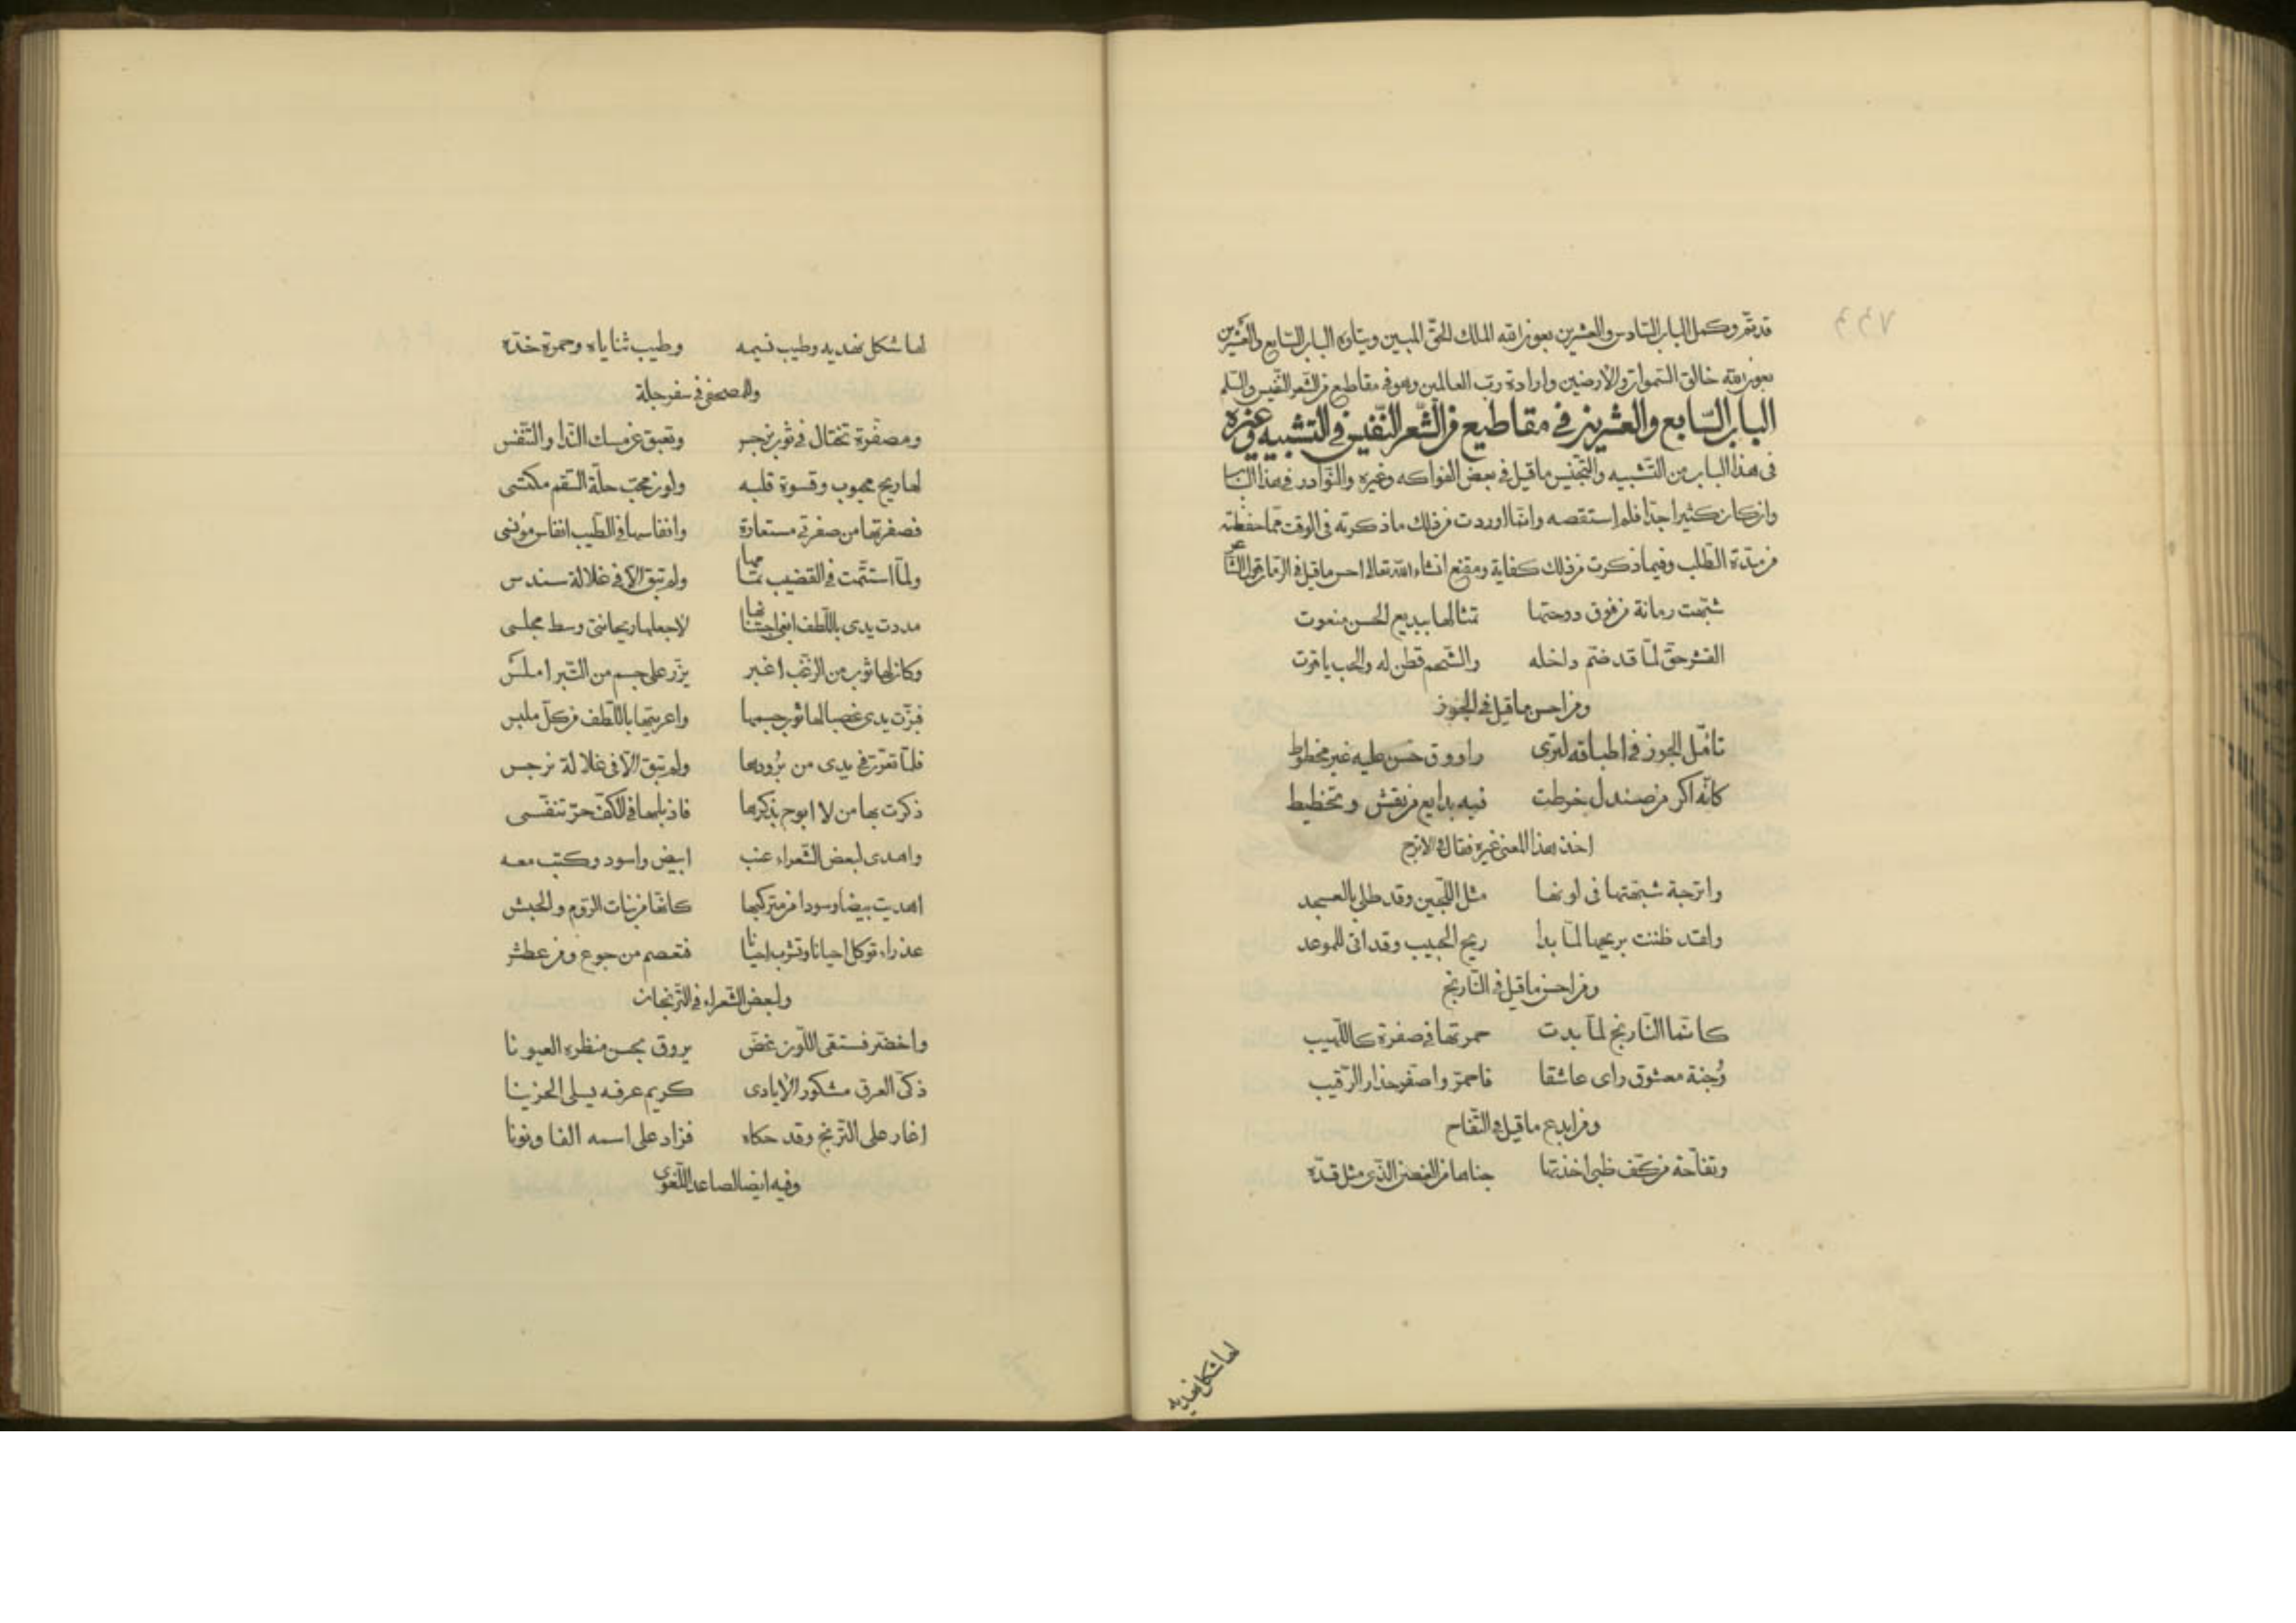 قد تمّ وكمل الباب السّادس والعشرين بعون الله الملك الحقّ المبين ويتلوه الباب السّابع والعشرين
بعون الله خالق السّموات والأرضين وارادة ربّ العالمين وهو في مقاطيع من الشّعر النّفيس والسّلم
الباب السّابع والعشرين في مقاطيع من الشّعر النّفيس في التّشبيه وغيره
في هذا الباب من التّشبيه والتّجنيس ما قيل في بعض الفواكه وغيره والنّوادر في هذا الباب
وان كان كثيرا جدّا فلم استقصه وانّما اوردت من ذلك ما ذكرته في الوقت ممّا حفظته
من مدّة الطّلب وفيما ذكرت من ذلك كفاية ومقنع انشاء الله تعالى احسن ما قيل في الرّمان قول الشّاعر
شبّهت رمانة من فوق دوحتها تمثالها ببديع الحسن منعوت
القشر حقّ لمّا قد ضمّ داخله والشّحم قطن له والحب ياقوت
ومن احسن ما قيل في الجوز
تأمّل الجوز في اطباقه لترى راووق حسن عليه غير مخطوط
كانّه اكر من صندل خرطت فيه بدايع من نقش وتخطيط
اخذ هذا المعنى غيره فقال في الاترج
واترجة شبّهتها في لونها مثل اللّجين وقد طلي بالعسجد
ولقد ظننت بريحها لمّا بدا ريح الحبيب وقد اتى للموعد
ومن احسن ما قيل في النّارنج
كانّما النّارنج لمّا بدت حمرتها في صفرة كاللّهيب
وُجنة معشوق راى عاشقا فاحمرّ واصفر حذار الرّقيب
ومن ابدع ما قيل في التّفاح
وتفاّحة من كف ظبي اخذتها جناها من الغصن الّذي مثل قدّه
لها شكل نهديه
لها شكل نهديه وطيب نسيمه وطيب ثناياه وحمرة خدّه
وللمصحفي في سفرجلة
ومصفرّة تختال في ثوب نرجس وتعبق عن مسك النّدا والتّنفّس
لها ريح محبوب وقسوة قلبه ولون محبّ حلّة السّقم مكتسى
فصفرتها من صفرتي مستعارة وانفاسها في الطّيب انفاس مؤنسى
ولمّا استتمّت في القضيب تمامها ولم تبق الاّ في غلالة سندس
مددت يدى باللّطف ابغي اجتنانها لاجعلها ريحانتي وسط مجلسى
وكان لها ثوب من الزّغب اغبر يزرّ على جسم من التّبر املس
فبزّت يدى غصبا لها ثوب جسمها واعريتها باللّطف من كلّ ملبس
فلمّا تعرّت في يدى من برُودها ولم تبق الاّ في غلالة نرجس
ذكرت بها من لا ابوح بذكرها فاذبلها في الكفّ حرّ تنفّسى
واهدى لبعض الشّعراء عنب ابيض واسود وكتب معه
اهديت بيضا وسودا من متركبها كانّها من بنات الرّوم والحبش
عذراء توكل احيانا وتشرب احيانا فتعصم من جوع ومن عطش
ولبعض الشّعراء في التّرنجان
واخضر فستقى اللّون غضّ يروق بحسن منظره العيونا
ذكىّ العرق مشكور الأيادى كريم عرفه يسلى الحزينا
اغار على التّرنج وقد حكاه فزاد على اسمه الفا ونونا
وفيه ايضا لصاعد اللّغوى